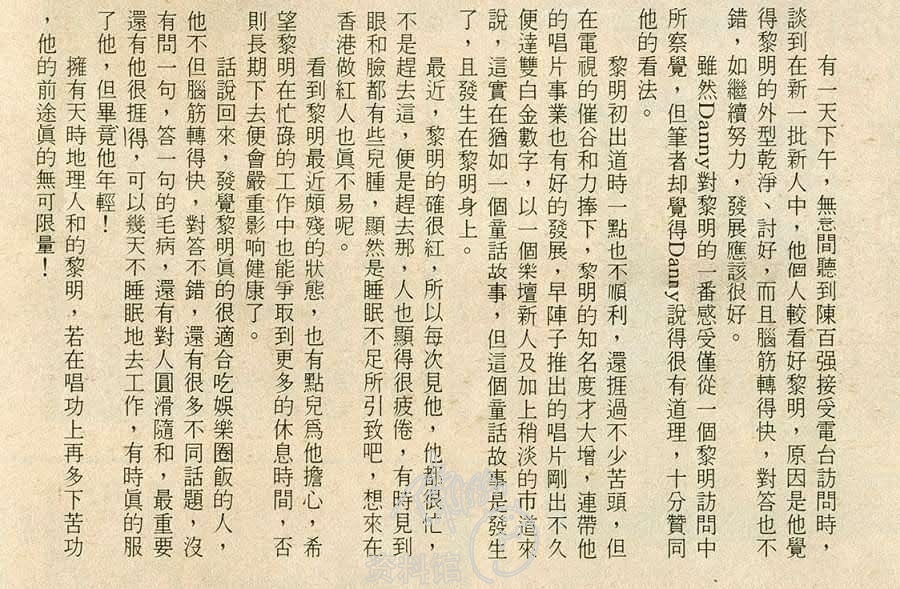 有一天下午，無意間聽到陳百强接受電台訪問時，
談到在新一批新人中，他個人較看好黎明，原因是他覺
得黎明的外型乾淨、討好，而且腦筋轉得快，對答也不
錯，如繼續努力，發展應該很好。
雖然Danny對黎明的一番感受僅從一個黎明訪問中
所察覺，但筆者却覺得Danny說得很有道理，十分贊同
他的看法。
黎明初出道時一點也不順利，還捱過不少苦頭，但
在電視的催谷和力捧下，黎明的知名度才大增，連帶他
的唱片事業也有好的發展，早陣子推出的唱片剛出不久
便達雙白金數字，以一個樂壇新人及加上稍淡的市道來
說，這實在猶如一個童話故事，但這個童話故事是發生
了，且發生在黎明身上。
最近，黎明的確很紅，所以每次見他，他都很忙，
不是趕去這，便是趕去那，人也顯得很疲倦，有時見到
眼和臉都有些兒腫，顯然是睡眠不足所引致吧，想來在
香港做紅人也眞不易呢。
看到黎明最近頗殘的狀態，也有點兒爲他擔心，希
望黎明在忙碌的工作中也能爭取到更多的休息時間，否
則長期下去便會嚴重影响健康了。
話說回來，發覺黎明眞的很適合吃娛樂圈飯的人，
他不但腦筋轉得快，對答不錯，還有很多不同話題，沒
有問一句，答一句的毛病，還有對人圓滑隨和，最重要
還有他很捱得，可以幾天不睡眠地去工作，有時眞的服
了他，但畢竟他年輕！
擁有天時地理人和的黎明，若在唱功上再多下苦功
，他的前途眞的無可限量！
资料馆